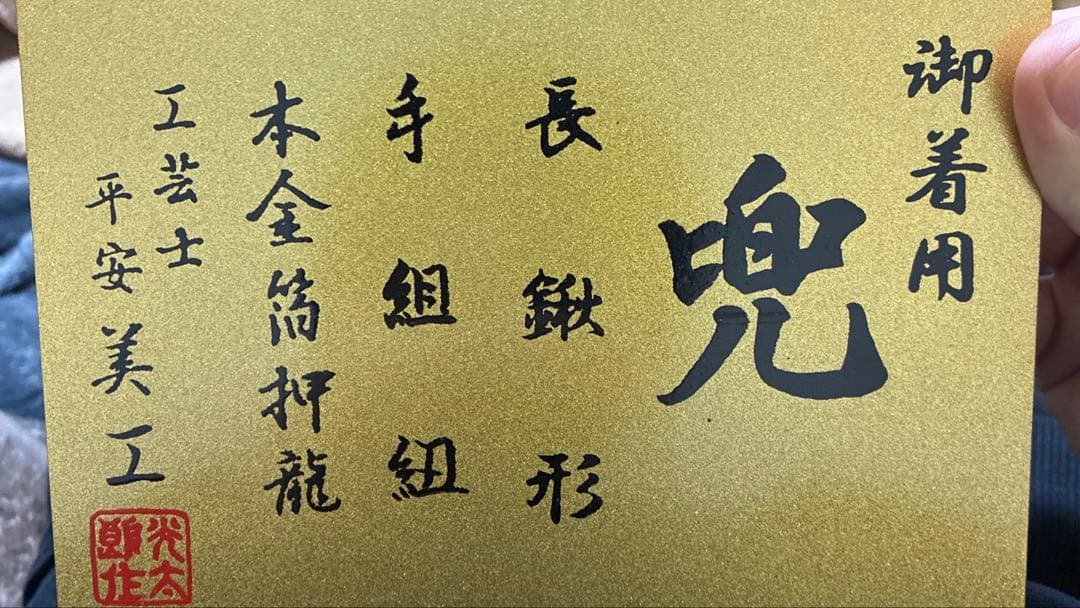 御着用
兜
長鍬形
手組紐
本金箔押龍
工芸士
平安美工
光太
郎作